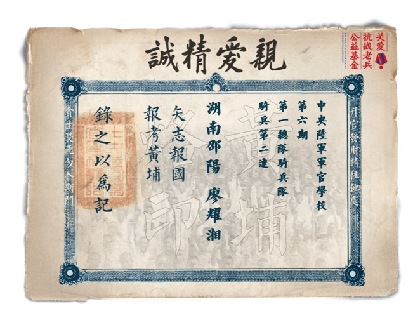 親愛精誠
关爱
抗战老兵
公益基金
升官發財請往他處
中央陸軍軍官學校
第六期
第一總隊騎兵隊
騎兵第二連
湖南邵陽 廖耀湘
矢志報國
報考黃埔
錄之以爲記
黃埔